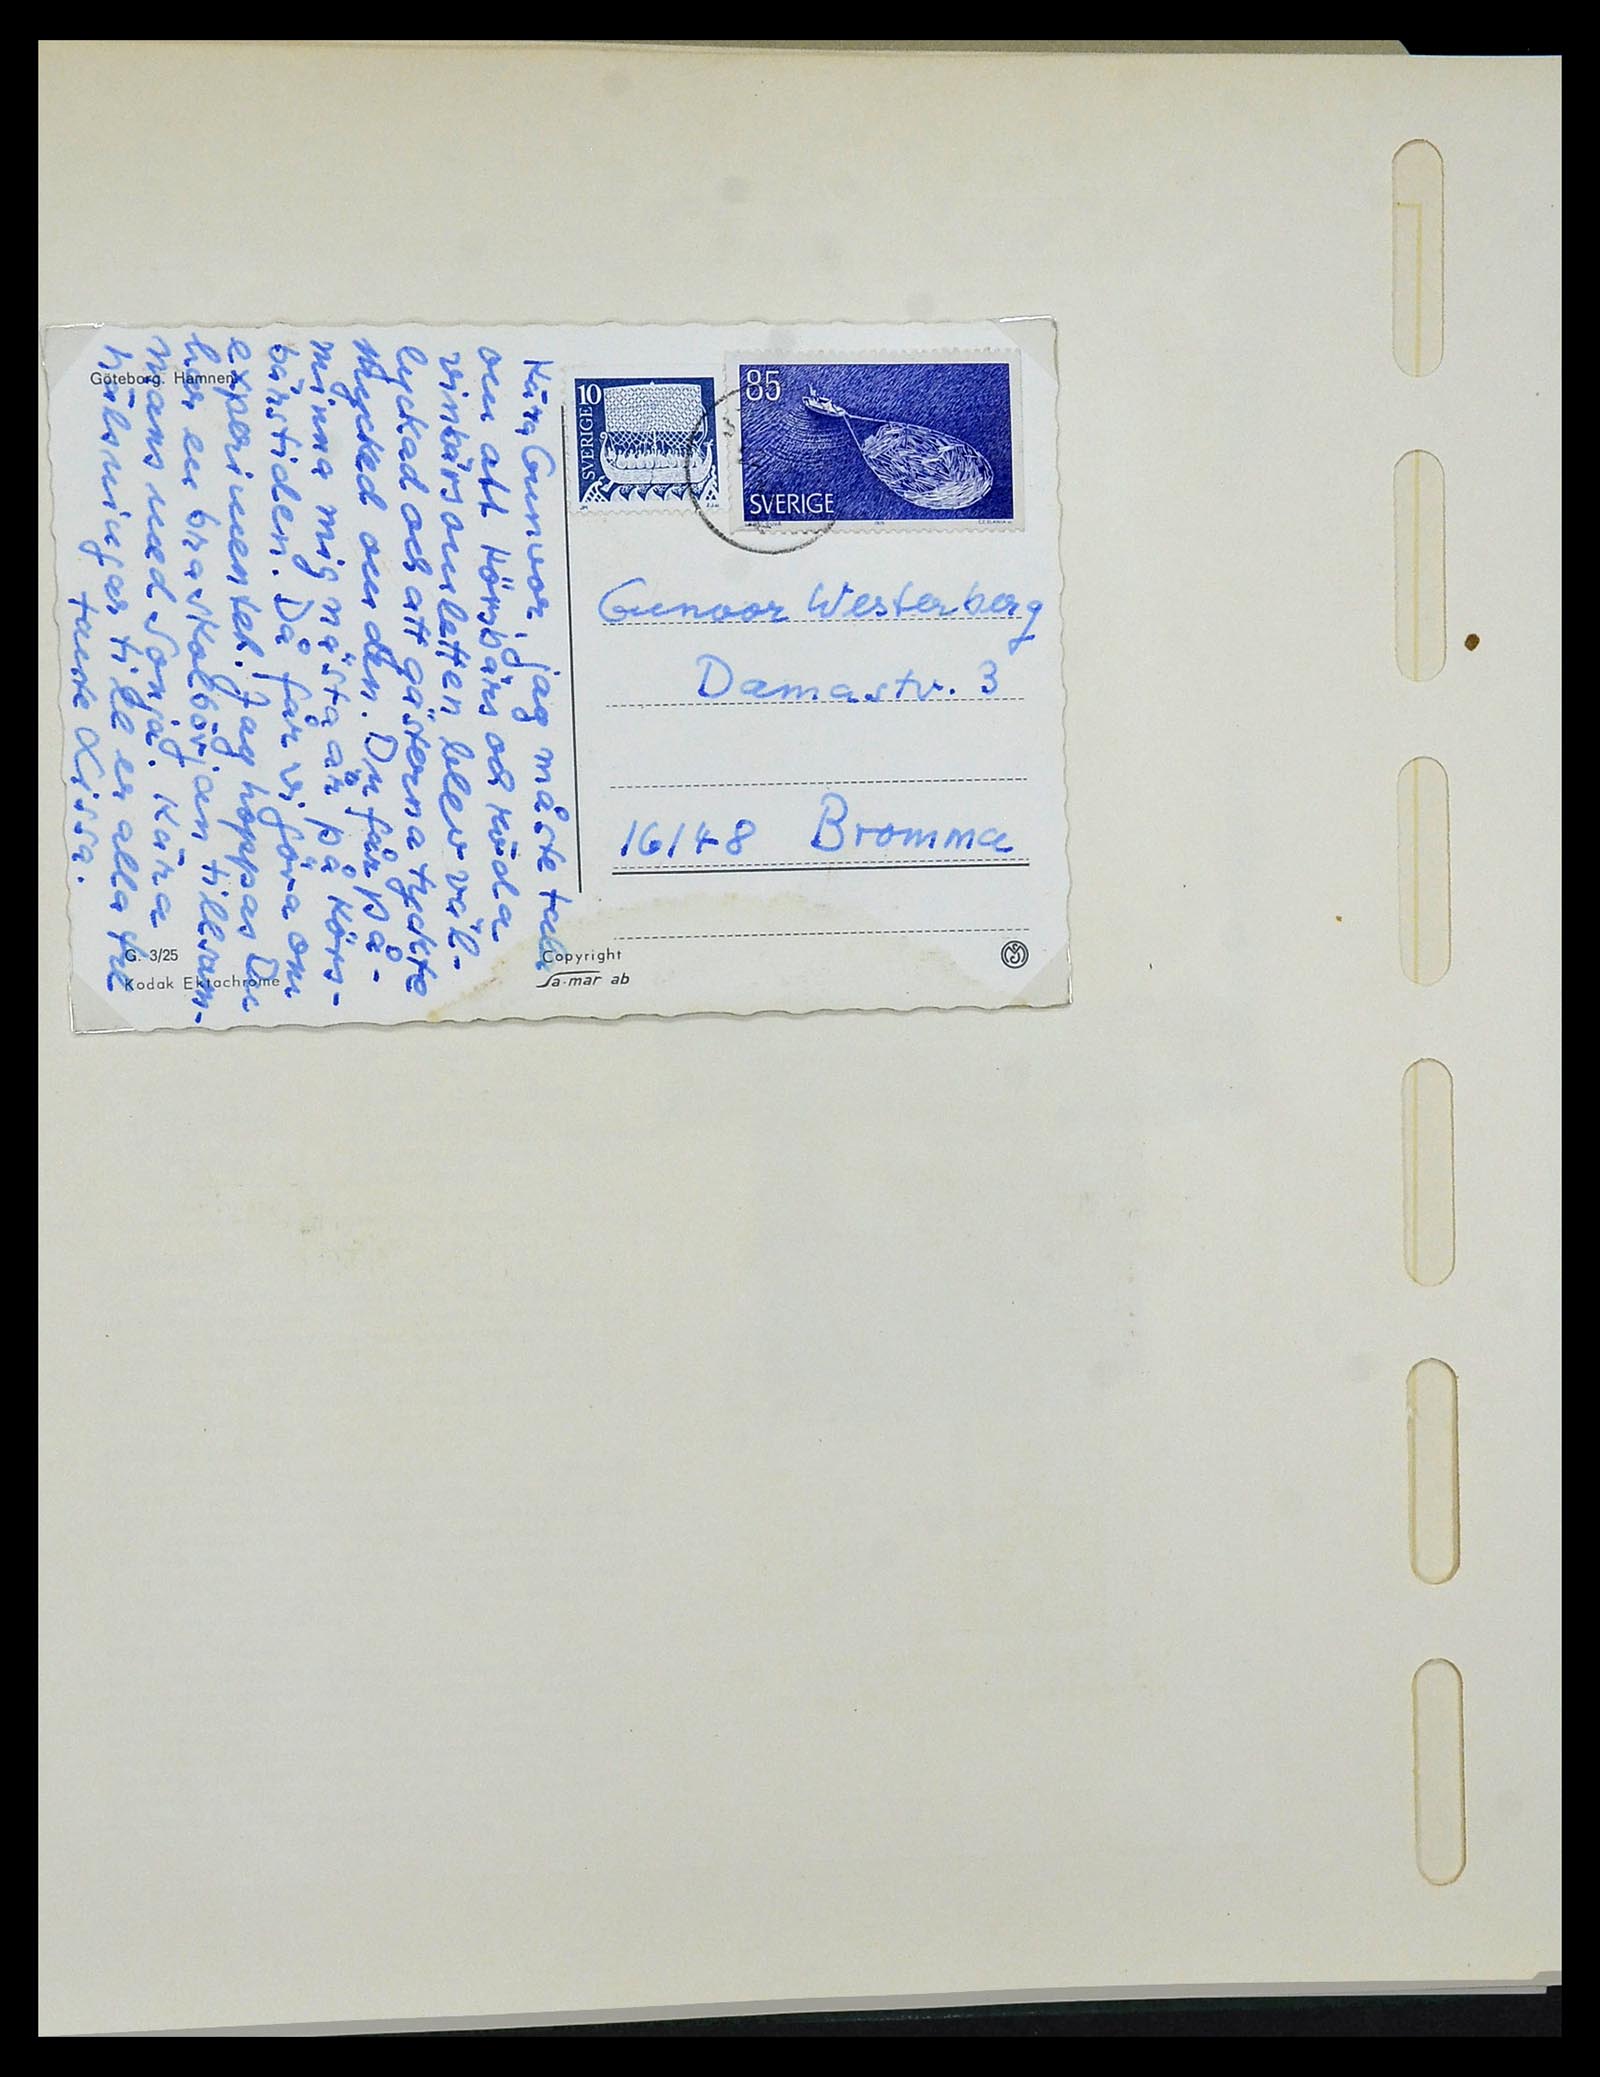 Göteborg. Hamnen
Kära Gunvor, jag måste tala
om att Körsbärs och Röda
vinbärsomletten blev väl-
lyckad och att gästerna tyckte
mycket om den. Du får på-
minna mig nästa år på Körs-
bärstiden. Då får vi göra om
experimentet. Jag hoppas Du
har en bra skolbörjan tillsam-
mans med Sonja. Kära
hälsningar till er alla tre
G. 3/25
Kodak Ektachrome
Copyright
Sa-mar ab
SVERIGE 10
85
SVERIGE
Gunvor Westerberg
Damastv. 3
16148 Bromma